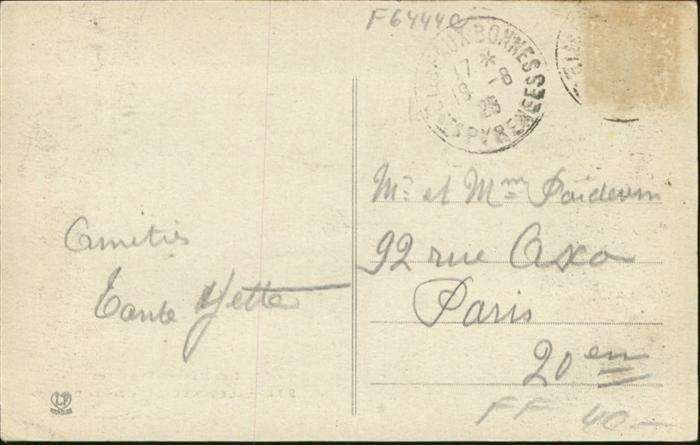 F64440
EAUX BONNES
17 * -8
28
PYRENEES
Amitiés
Tante Yette
Mr. et Mme
92 rue Axo
Paris
20 em
FF 40 -